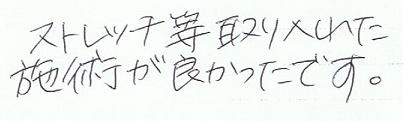 ストレッチ等取り入れた
施術が良かったです。